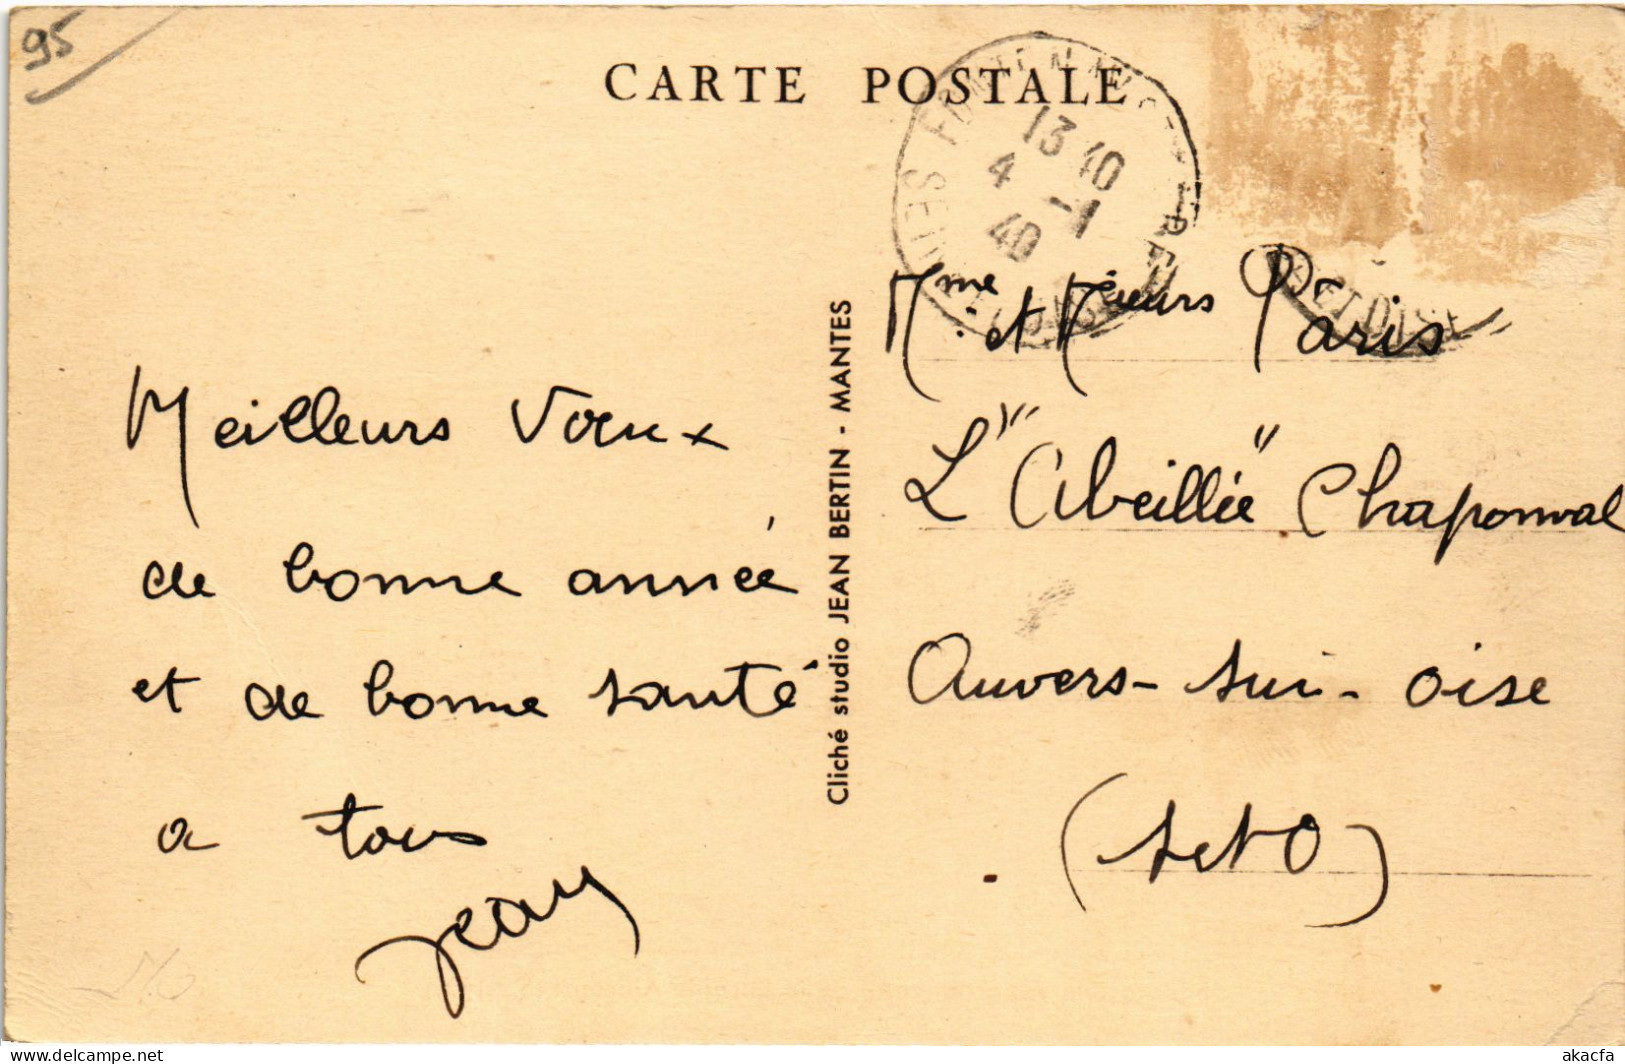 95
CARTE POSTALE
13 40
4 -1
40
Meilleurs Voeux
de bonne année
et de bonne santé
a tous
Jean
Cliché studio JEAN BERTIN - MANTES
Mme et Paris
L'"Abeillée" Chaponval
Auvers-sur-Oise
(S et O)
akacfa
delcampe.net